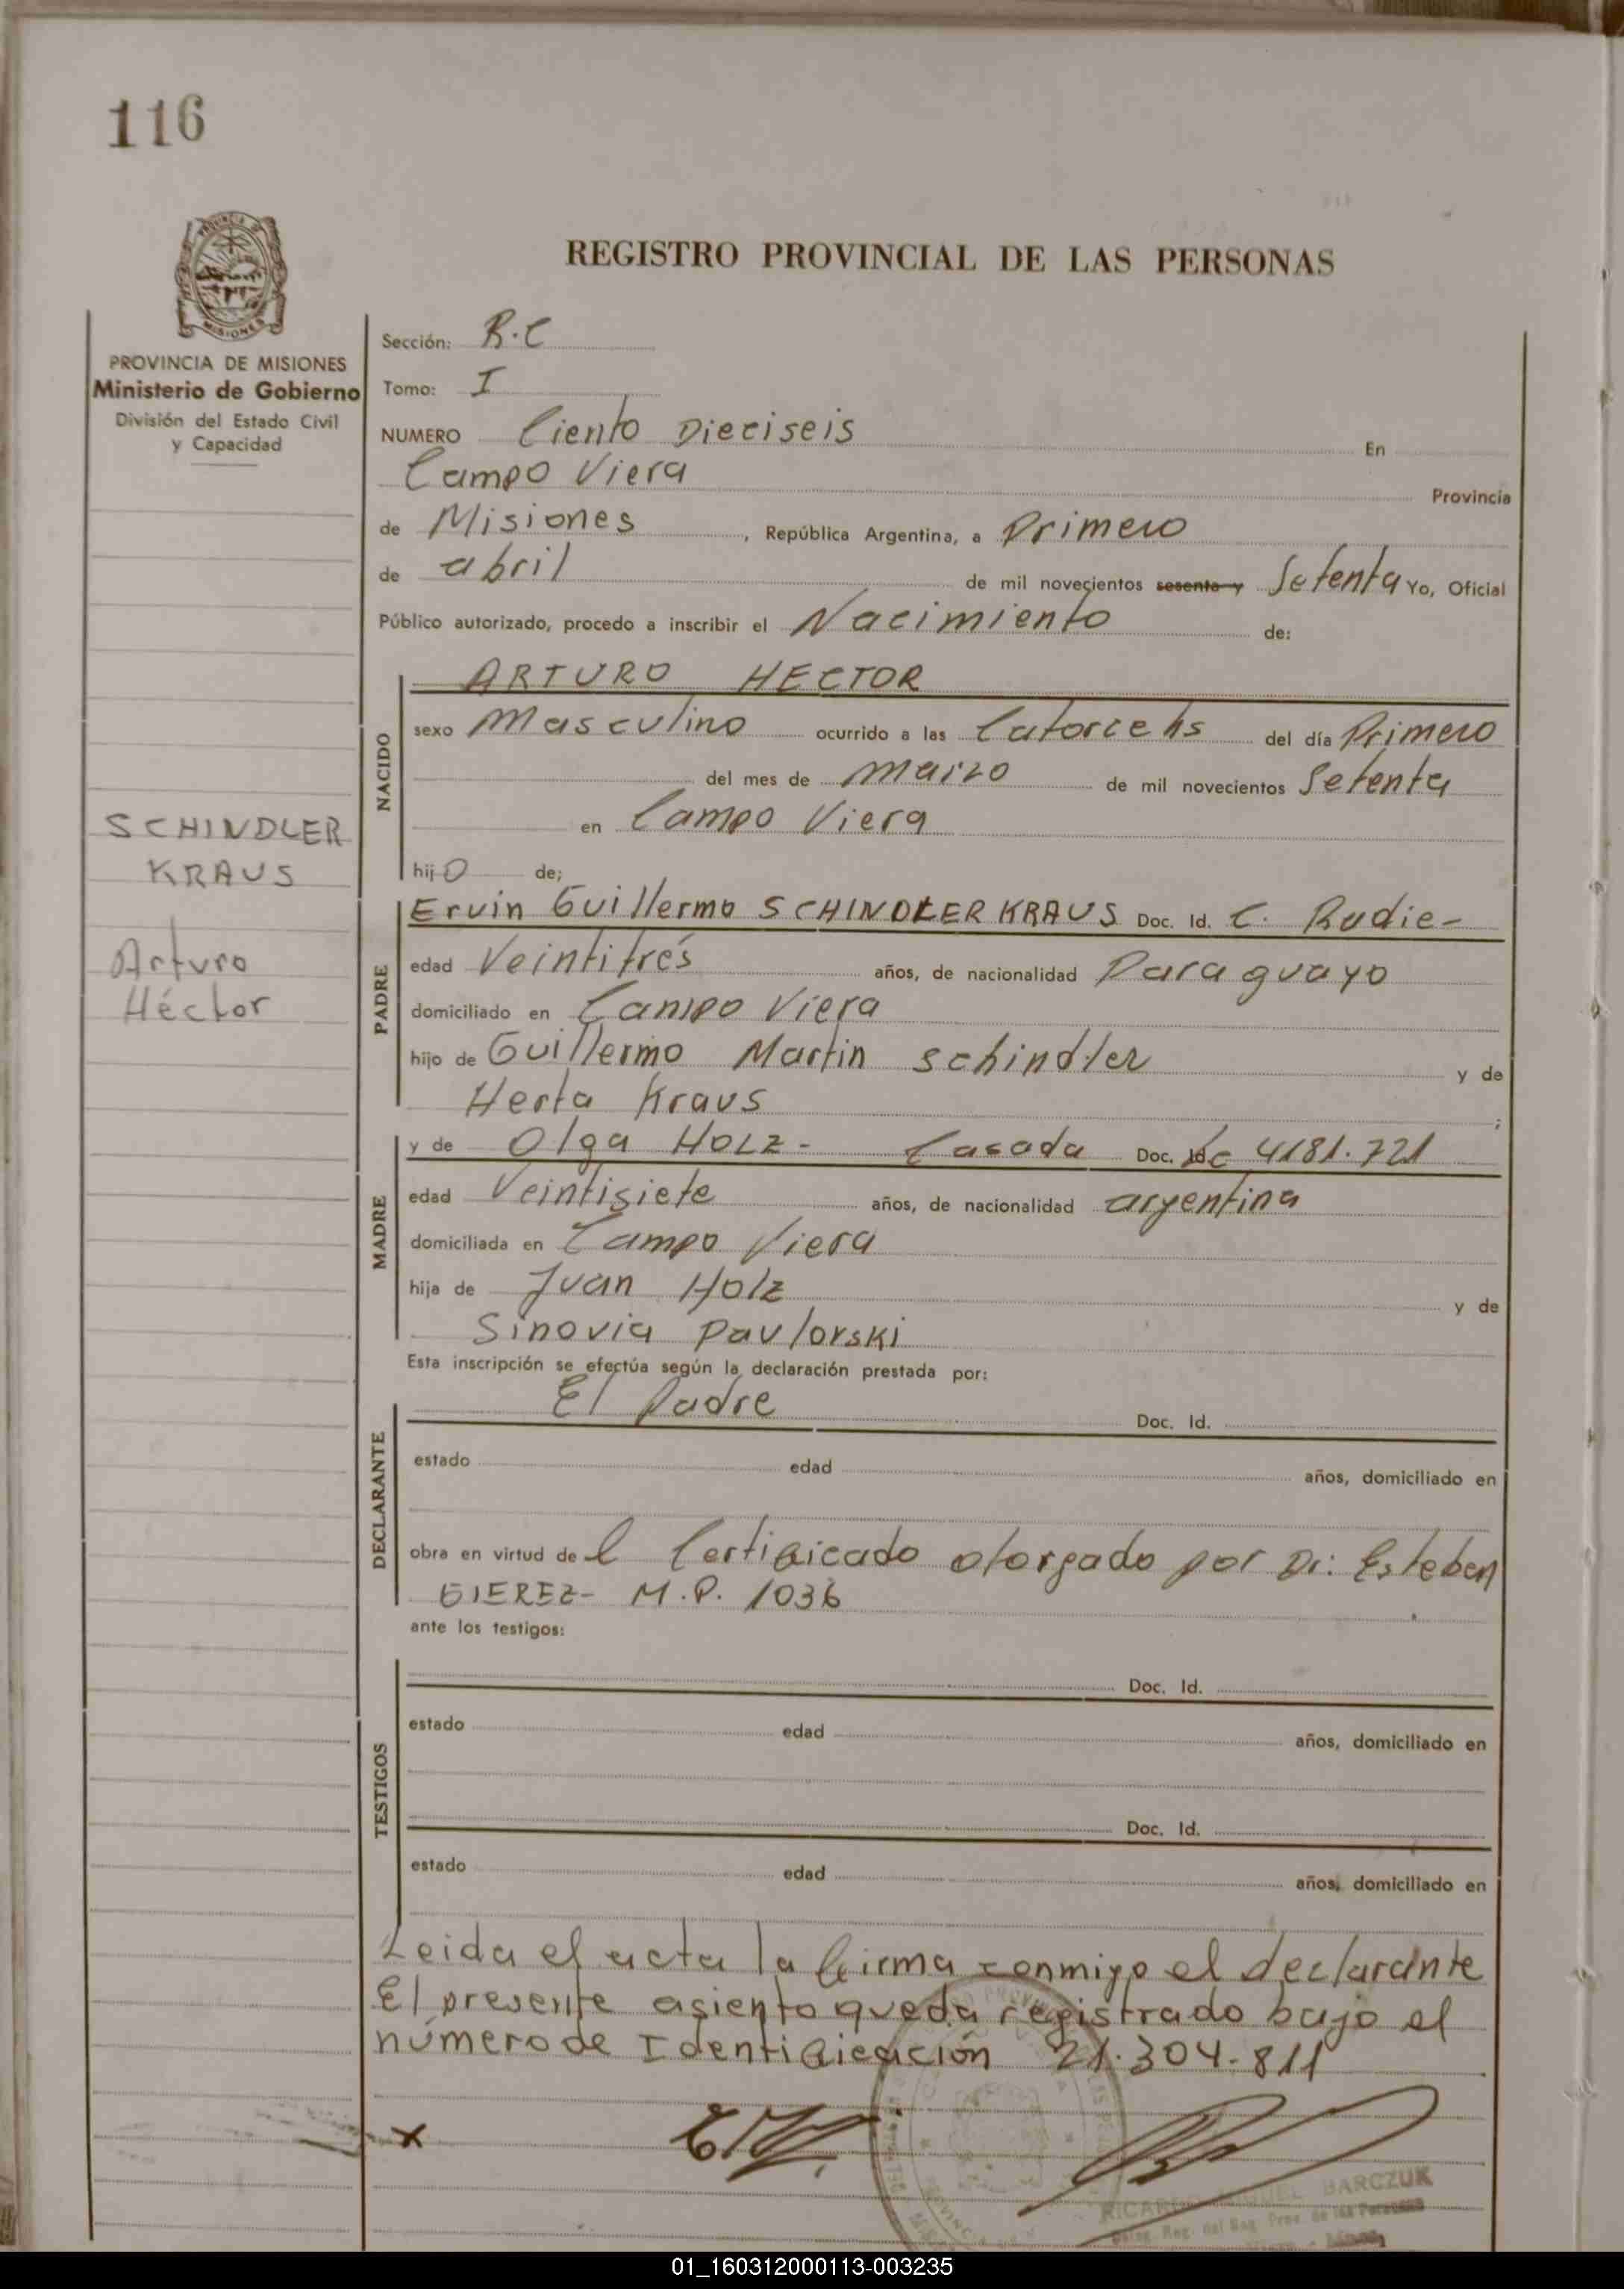 116
REGISTRO PROVINCIAL DE LAS PERSONAS
MISIONES
PROVINCIA DE MISIONES
Ministerio de Gobierno
División del Estado Civil
y Capacidad
SCHINDLER
KRAUS
Arturo
Héctor
Sección: R.C
Tomo: I
NUMERO Ciento Dieciseis En
Campo Viera Provincia
de Misiones, República Argentina, a Primero
de abril de mil novecientos sesenta y Setenta Yo, Oficial
Público autorizado, procedo a inscribir el Nacimiento de:
NACIDO
ARTURO HECTOR
sexo Masculino ocurrido a las Catorce hs del día Primero
del mes de marzo de mil novecientos Setenta
en Campo Viera
hijo de;
PADRE
Ervin Guillermo SCHINDLER KRAUS Doc. Id. C. Radic-
edad Veintitrés años, de nacionalidad Paraguayo
domiciliado en Campo Viera
hijo de Guillermo Martin Schindler y de
Herta Kraus ;
MADRE
y de Olga HOLZ- Casada Doc. Lc 4181.721
edad Veintisiete años, de nacionalidad argentina
domiciliada en Campo Viera
hija de Juan Holz y de
Sinovia Pavlovski
Esta inscripción se efectúa según la declaración prestada por:
DECLARANTE
El Padre Doc. Id.
estado edad años, domiciliado en
obra en virtud del Certificado otorgado por Dr: Esteben
GIEREZ- M.P. 1036
ante los testigos:
TESTIGOS
Doc. Id.
estado edad años, domiciliado en
Doc. Id.
estado edad años, domiciliado en
Leida el acta la firma conmigo el declarante
El presente asiento queda registrado bajo el
número de Identificación 21.304.811
x
RICARDO MIGUEL BARCZUK
Deleg. Reg. del Reg. Prov. de las Personas
01_160312000113-003235